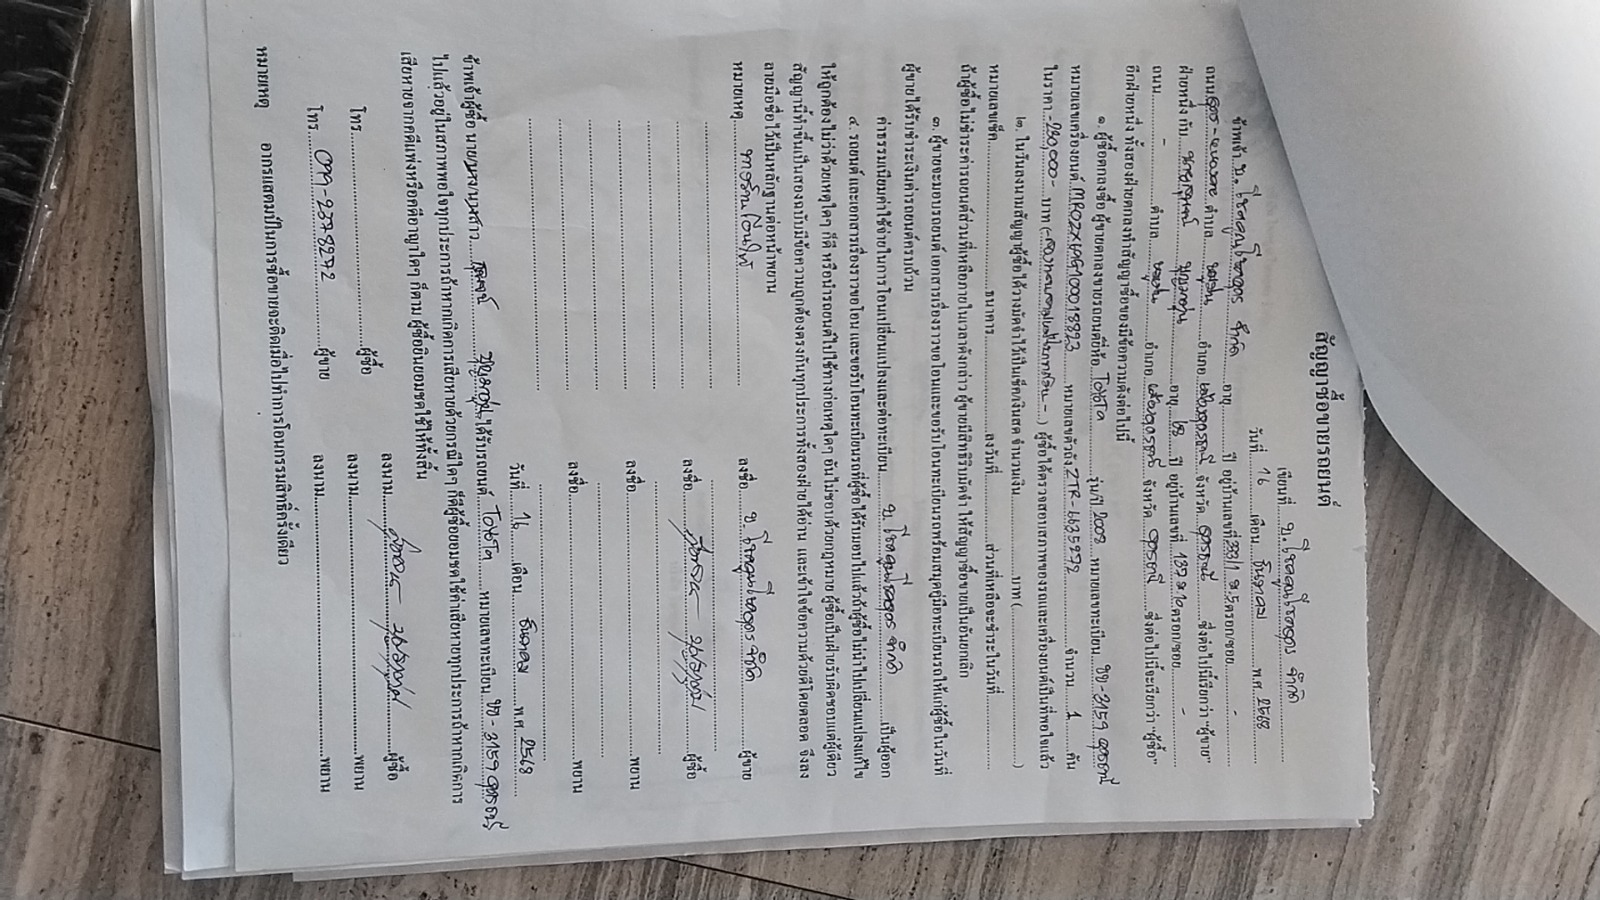 สัญญาซื้อขายรถยนต์
เขียนที่ บ.โชคคูณโชคอุดร จำกัด
วันที่ 16 เดือน ธันวาคม พ.ศ. 2568
ข้าพเจ้า บ.โชคคูณโชคอุดร จำกัด อายุ ปี อยู่บ้านเลขที่ 88/1 ม.5 ตรอก/ซอย -
ถนน อุดร - ตำบล อำเภอ เมืองอุดรธานี จังหวัด อุดรธานี ซึ่งต่อไปนี้เรียกว่า "ผู้ขาย"
ฝ่ายหนึ่ง กับ อายุ ปี อยู่บ้านเลขที่ 137 ม.10 ตรอก/ซอย -
ถนน - ตำบล อำเภอ เมืองอุดรธานี จังหวัด อุดรธานี ซึ่งต่อไปนี้จะเรียกว่า "ผู้ซื้อ"
อีกฝ่ายหนึ่ง ทั้งสองฝ่ายตกลงทำสัญญาซื้อของมีข้อความดังต่อไปนี้
๑. ผู้ซื้อตกลงซื้อ ผู้ขายตกลงขายรถยนต์ยี่ห้อ TOYOTA รุ่น/ปี 2008 หมายเลขทะเบียน ขข-3159 อุดรธานี
หมายเลขเครื่องยนต์ MR0ZX69G100018823 หมายเลขตัวถัง 2TR-6635272 จำนวน 1 คัน
ในราคา -230,000- บาท (-สองแสนสามหมื่นบาทถ้วน-) ผู้ซื้อได้ตรวจสอบสภาพของรถและเครื่องยนต์เป็นที่พอใจแล้ว
๒. ในวันลงนามสัญญาผู้ซื้อได้วางมัดจำไว้เป็นเช็คเงินสด จำนวนเงิน บาท ( )
หมายเลขเช็ค ธนาคาร ลงวันที่ ส่วนที่เหลือจะชำระในวันที่
ถ้าผู้ซื้อไม่ชำระค่ารถยนต์ส่วนที่เหลือภายในเวลาดังกล่าว ผู้ขายมีสิทธิริบมัดจำ ให้สัญญาซื้อขายเป็นอันยกเลิก
๓. ผู้ขายจะมอบรถยนต์ เอกสารเรื่องราวขอโอนและขอรับโอนทะเบียนรถพร้อมสมุดคู่มือทะเบียนรถให้แก่ผู้ซื้อในวันที่
ผู้ขายได้รับชำระเงินค่ารถยนต์ครบถ้วน
ค่าธรรมเนียมค่าใช้จ่ายในการโอนเปลี่ยนแปลงและต่อทะเบียน บ.โชคคูณโชคอุดร จำกัด เป็นผู้ออก
๔. รถยนต์และเอกสารเรื่องราวขอโอนและขอรับโอนทะเบียนรถที่ผู้ซื้อได้รับมอบไปแล้วถ้าผู้ซื้อไม่นำไปเปลี่ยนแปลงแก้ไข
ให้ถูกต้องไม่ว่าด้วยเหตุใดๆ ก็ดี หรือนำรถยนต์ไปใช้ทางก่อเหตุใดๆ อันไม่ชอบด้วยกฎหมาย ผู้ซื้อเป็นฝ่ายรับผิดชอบแต่ผู้เดียว
สัญญานี้ทำขึ้นเป็นสองฉบับมีข้อความถูกต้องตรงกันทุกประการทั้งสองฝ่ายได้อ่าน และเข้าใจข้อความด้วยดีโดยตลอด จึงลง
ลายมือชื่อไว้เป็นหลักฐานต่อหน้าพยาน
หมายเหตุ ลงชื่อ บ.โชคคูณโชคอุดร จำกัด ผู้ขาย
ลงชื่อ ผู้ซื้อ
ลงชื่อ พยาน
ลงชื่อ พยาน
วันที่ 16 เดือน ธันวาคม พ.ศ. 2568
ข้าพเจ้าผู้ซื้อ นาย/นาง/นางสาว ได้รับรถยนต์ TOYOTA หมายเลขทะเบียน ขข-3159 อุดรธานี
ไปแล้วอยู่ในสภาพพอใจทุกประการถ้าหากเกิดการเสียหายด้วยกรณีใดๆ ก็ดีผู้ซื้อยอมชดใช้ค่าเสียหายทุกประการถ้าหากเกิดการ
เสียหายจากคดีแพ่งหรือคดีอาญาใดๆ ก็ตาม ผู้ซื้อยินยอมชดใช้ให้ทั้งสิ้น
ลงนาม ผู้ซื้อ
โทร ผู้ซื้อ ลงนาม พยาน
โทร 099-2378272 ผู้ขาย ลงนาม พยาน
หมายเหตุ อากรแสตมป์ในการซื้อขายจะติดเมื่อไปทำการโอนกรรมสิทธิ์ครั้งเดียว